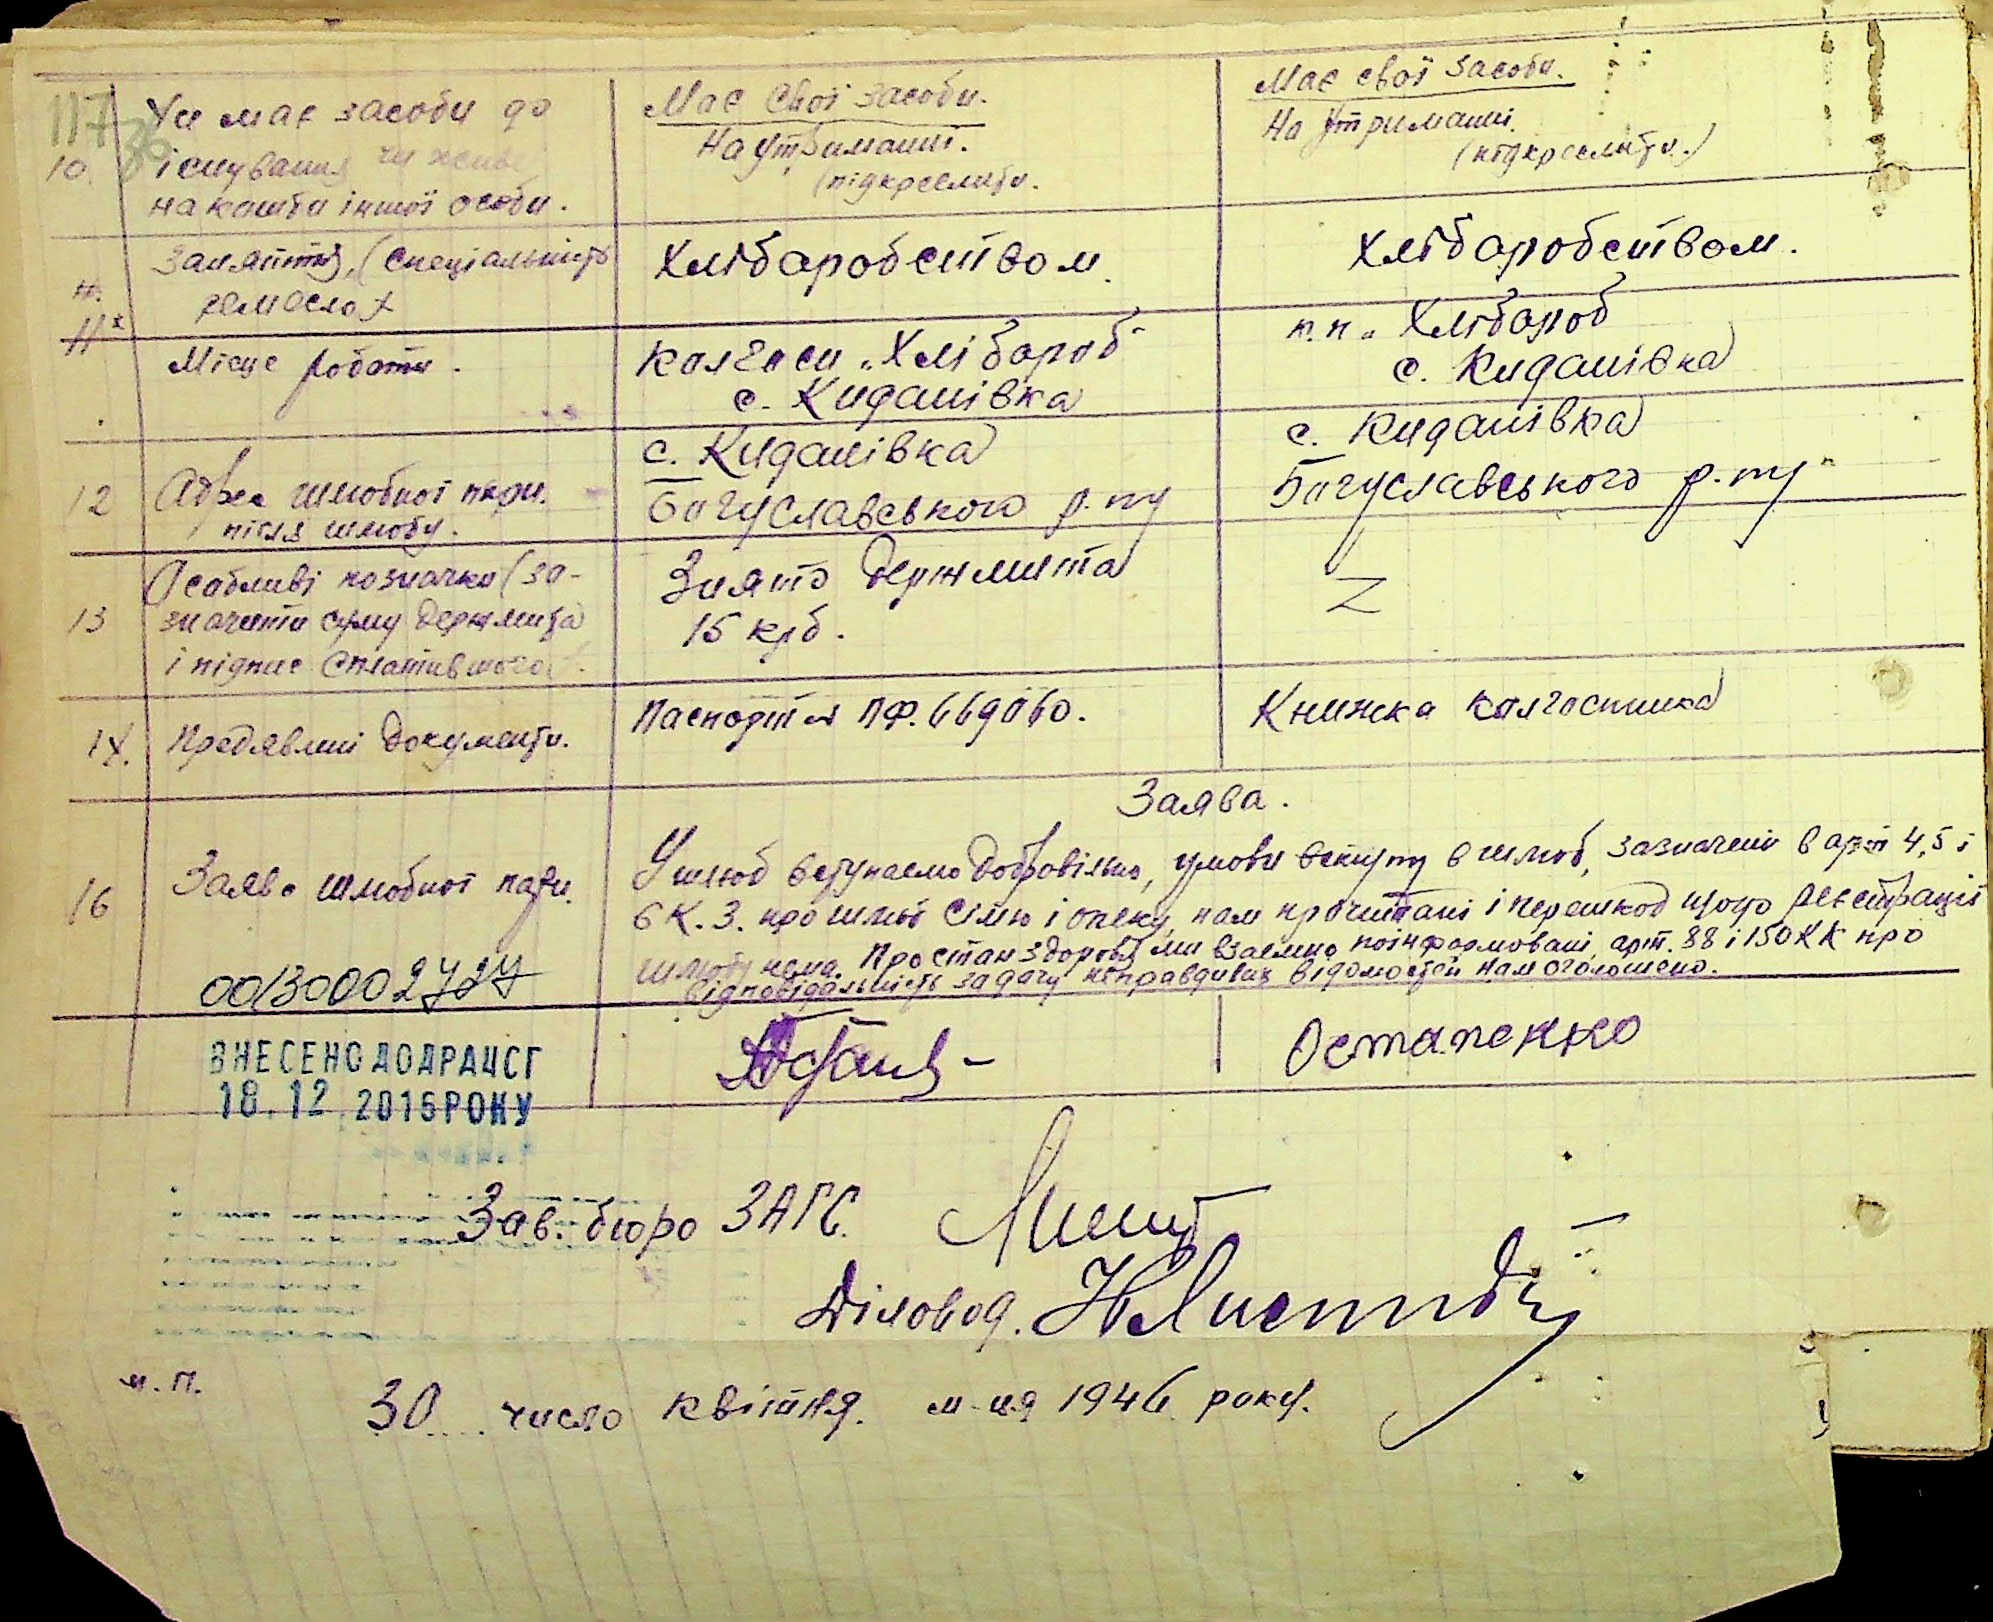 117
10. Чи має засоби до
існування чи живе
на кошти іншої особи.
Має свої засоби.
На утриманні.
(підкреслити.
Має свої засоби.
На утриманні.
(підкреслити.)
Заняття, (спеціальність
ремесло)
Хліборобством.
Хліборобством.
11
Місце роботи.
колгосп „Хлібороб"
с. Киданівка
к.п „Хлібороб
с. Киданівка
12 Адреса шлюбної пари.
після шлюбу.
с. Киданівка
Богуславського р.ну
с. Киданівка
Богуславського р.ну
13 Особливі позначки (за-
значити суму держмита
і підпис сплатившого).
Знято держмита
15 крб.
Z
14. Предявлені документи.
Паспорт ПФ. 669060.
Книжка колгоспника
Заява.
16 Заява шлюбної пари.
У шлюб вступаємо добровільно, умови вступу в шлюб, зазначені в арт 4,5 і
6 К.З. про шлюб сімю і опеку, нам прочитані і перешкод щодо реєстрації
шлюбу нема. Про стан здоровя ми взаємно поінформовані, арт. 88 і 150 КК про
відповідальність за дачу неправдивих відомостей нам оголошено.
00130002727
ВНЕСЕНО ДО ДРАЦСГ
18.12.2015 РОКУ
Остапенко
Зав. бюро ЗАГС.
Діловод.
м.п. 30 число квітня. м-ця 1946 року.